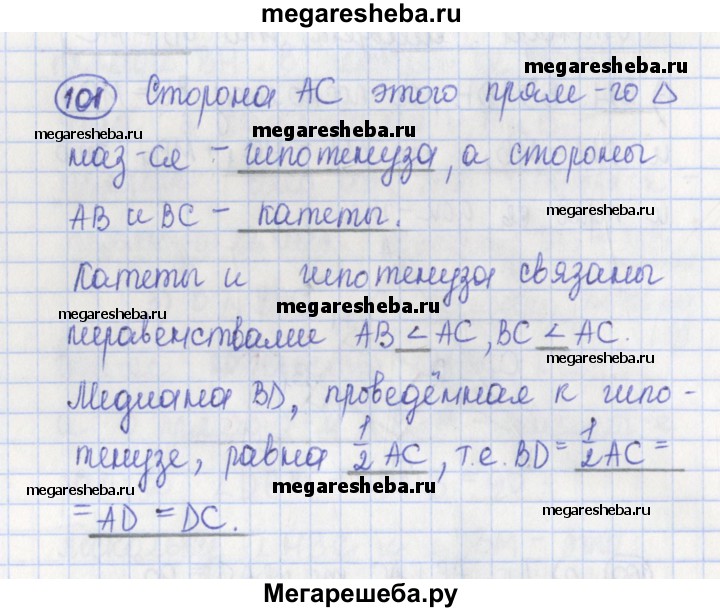 megaresheba.ru
megaresheba.ru
101 Сторона АС этого прям-го Δ
megaresheba.ru megaresheba.ru
наз-ся – гипотенуза, а стороны
АВ и ВС – катеты.
megaresheba.ru
Катеты и гипотенуза связаны
megaresheba.ru megaresheba.ru
неравенствами АВ < АС, ВС < АС.
megaresheba.ru
Медиана BD, проведённая к гипо-
тенузе, равна 1/2 АС, т.е. BD = 1/2 АС =
megaresheba.ru megaresheba.ru
= AD = DC.
megaresheba.ru
megaresheba.ru
Мегарешеба.ру